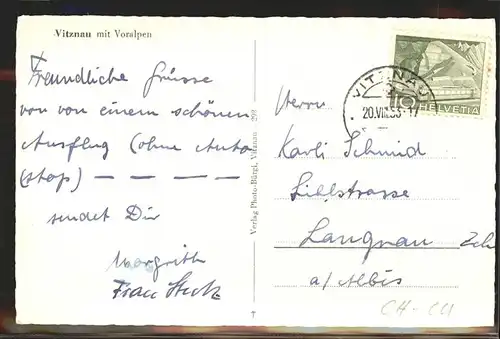 Vitznau mit Voralpen
Freundliche Grüsse
von von einem schönen
Ausflug (ohne Auto
(stop) — — — —
sendet Dir
Margrith
Frau
Verlag Photo-Bürgi, Vitznau
VITZNAU
20.VII.53-17
10 HELVETIA
Herrn
Karli Schmid
Sihlstrasse
Langnau Zch
a/Albis
CH-CH